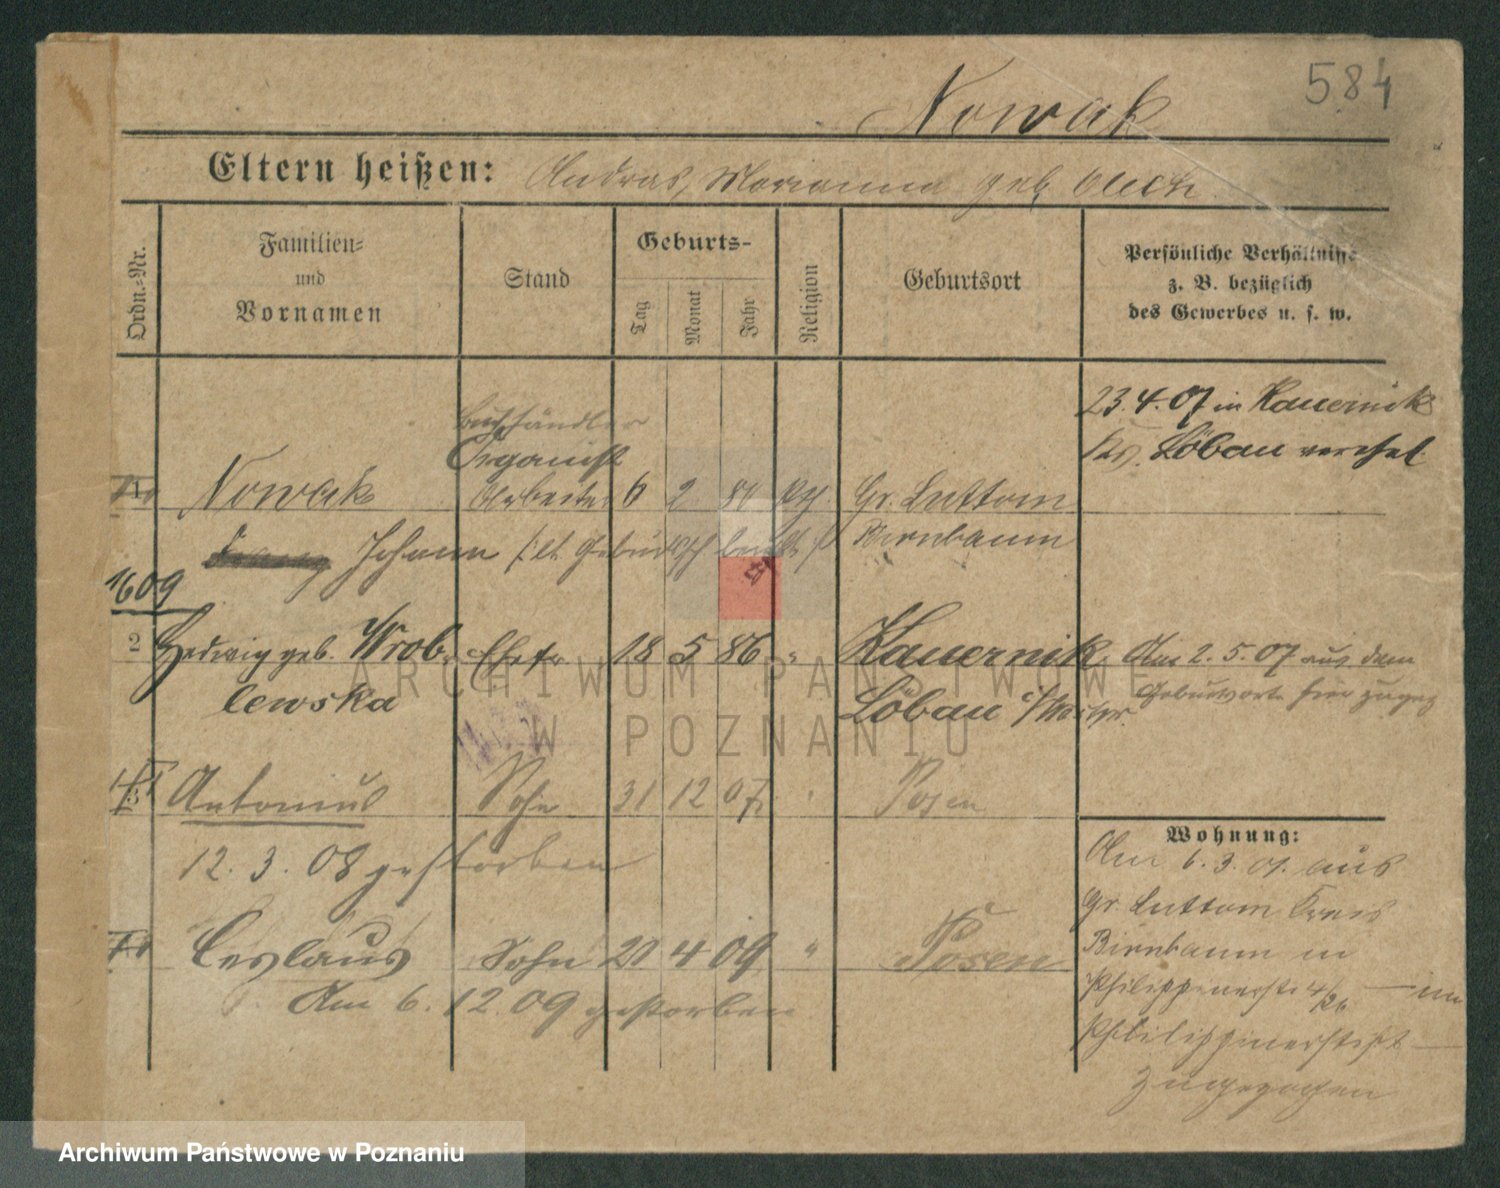 584
Nowak
Eltern heißen: Andreas, Marianna geb.
Ordn.-Nr.
Familien-
und
Vornamen
Stand
Geburts-
Tag
Monat
Jahr
Religion
Geburtsort
Persönliche Verhältnisse
z. B. bezüglich
des Gewerbes u. s. w.
23.4.07 in Kauernik
Kr. Löbau verehel.
Buchhändler
Organist
1 Nowak Arbeiter 6 2 81 Gr. Luttom
Johann Birnbaum
1609
2 Hedwig geb. Wrob- Ehefr 18 5 86 " Kauernik Am 2.5.07 aus dem
lewska Löbau Geburtsorte hier zugez
3 Antonius Sohn 31 12 07 " Posen
12.3.08 gestorben
Ceslaus Sohn 20 4 09 " Posen
Am 6.12.09 gestorben
Wohnung:
Am 6.3.01. aus
Gr. Luttom Kreis
Birnbaum in
Philippinerstr 4/
Philippinerstift
zugezogen
ARCHIWUM PAŃSTWOWE
W POZNANIU
Archiwum Państwowe w Poznaniu